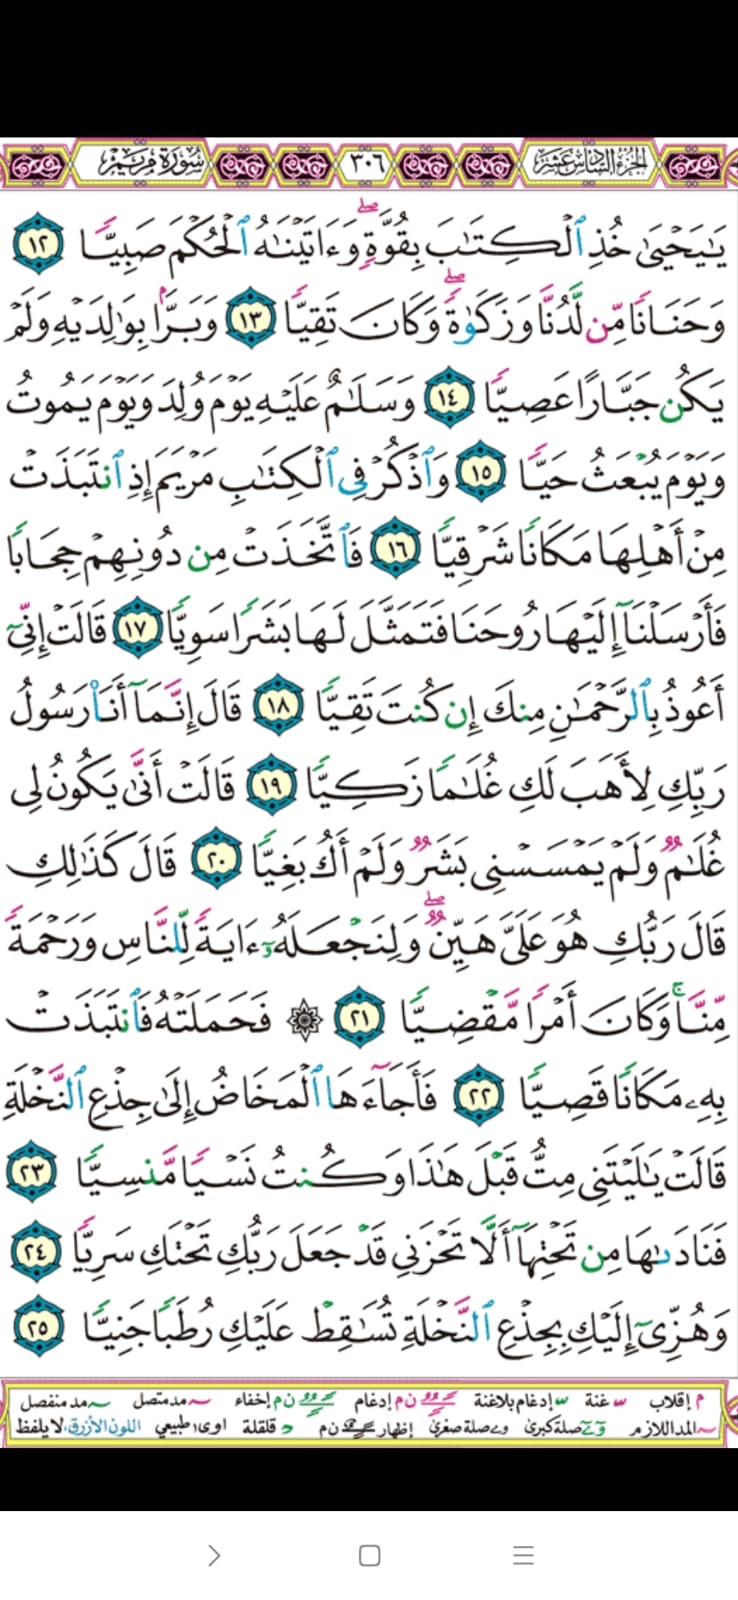 الجزء السادس عشر ٣٠٦ سورة مريم
يَٰيَحْيَىٰ خُذِ ٱلْكِتَٰبَ بِقُوَّةٍۖ وَءَاتَيْنَٰهُ ٱلْحُكْمَ صَبِيًّا ١٢
وَحَنَانًا مِّن لَّدُنَّا وَزَكَوٰةًۖ وَكَانَ تَقِيًّا ١٣ وَبَرًّۢا بِوَٰلِدَيْهِ وَلَمْ
يَكُن جَبَّارًا عَصِيًّا ١٤ وَسَلَٰمٌ عَلَيْهِ يَوْمَ وُلِدَ وَيَوْمَ يَمُوتُ
وَيَوْمَ يُبْعَثُ حَيًّا ١٥ وَٱذْكُرْ فِى ٱلْكِتَٰبِ مَرْيَمَ إِذِ ٱنتَبَذَتْ
مِنْ أَهْلِهَا مَكَانًا شَرْقِيًّا ١٦ فَٱتَّخَذَتْ مِن دُونِهِمْ حِجَابًا
فَأَرْسَلْنَآ إِلَيْهَا رُوحَنَا فَتَمَثَّلَ لَهَا بَشَرًا سَوِيًّا ١٧ قَالَتْ إِنِّىٓ
أَعُوذُ بِٱلرَّحْمَٰنِ مِنكَ إِن كُنتَ تَقِيًّا ١٨ قَالَ إِنَّمَآ أَنَا۠ رَسُولُ
رَبِّكِ لِأَهَبَ لَكِ غُلَٰمًا زَكِيًّا ١٩ قَالَتْ أَنَّىٰ يَكُونُ لِى
غُلَٰمٌ وَلَمْ يَمْسَسْنِى بَشَرٌ وَلَمْ أَكُ بَغِيًّا ٢٠ قَالَ كَذَٰلِكِ
قَالَ رَبُّكِ هُوَ عَلَىَّ هَيِّنٌۖ وَلِنَجْعَلَهُۥٓ ءَايَةً لِّلنَّاسِ وَرَحْمَةً
مِّنَّاۚ وَكَانَ أَمْرًا مَّقْضِيًّا ٢١ ۞ فَحَمَلَتْهُ فَٱنتَبَذَتْ
بِهِۦ مَكَانًا قَصِيًّا ٢٢ فَأَجَآءَهَا ٱلْمَخَاضُ إِلَىٰ جِذْعِ ٱلنَّخْلَةِ
قَالَتْ يَٰلَيْتَنِى مِتُّ قَبْلَ هَٰذَا وَكُنتُ نَسْيًا مَّنسِيًّا ٢٣
فَنَادَىٰهَا مِن تَحْتِهَآ أَلَّا تَحْزَنِى قَدْ جَعَلَ رَبُّكِ تَحْتَكِ سَرِيًّا ٢٤
وَهُزِّىٓ إِلَيْكِ بِجِذْعِ ٱلنَّخْلَةِ تُسَٰقِطْ عَلَيْكِ رُطَبًا جَنِيًّا ٢٥
م إقلاب غنة إدغام بلاغنة ن م إدغام ن م إخفاء مد متصل مد منفصل
المد اللازم صلة كبرى صلة صغرى إظهار ن م قلقلة اوى طبيعي اللون الأزرق، لا يلفظ